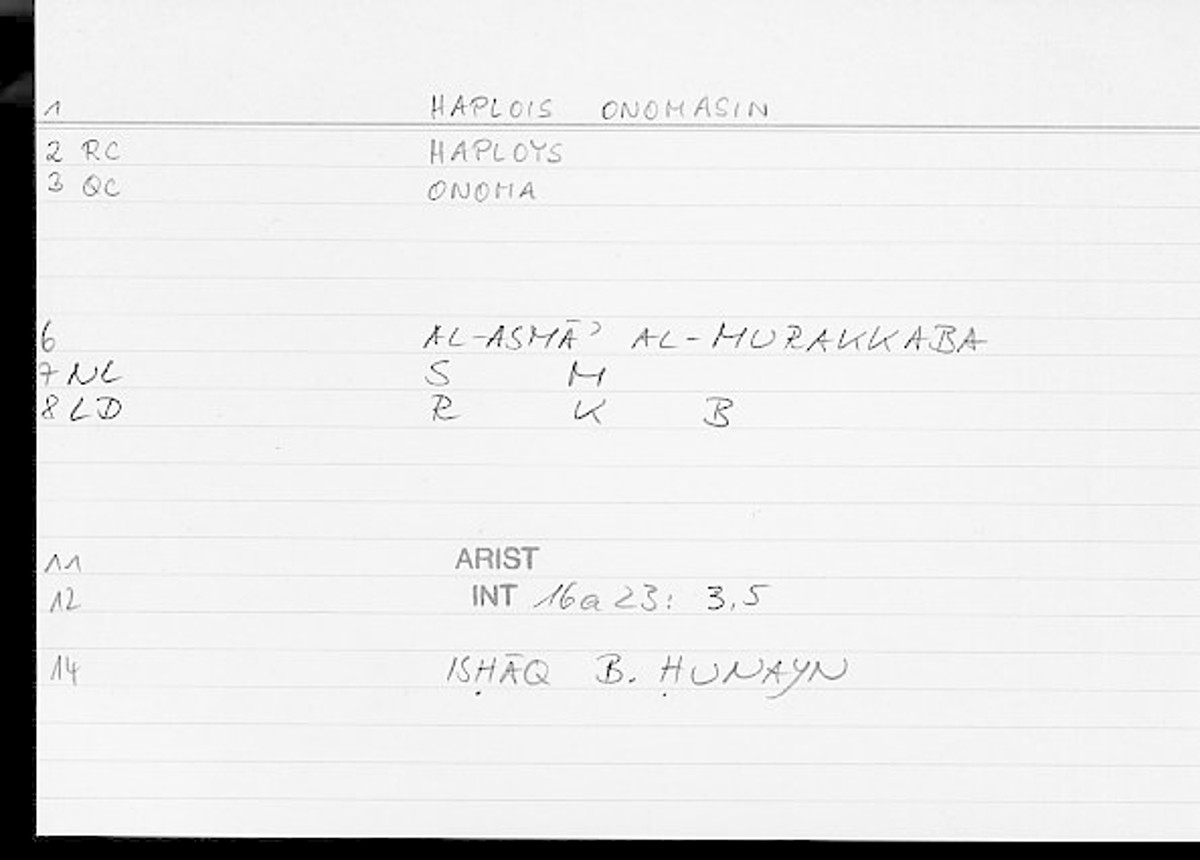 1 HAPLOIS ONOMASIN
2 RC HAPLOYS
3 QC ONOMA
6 AL-ASMĀʾ AL-MURAKKABA
7 NL S M
8 LD R K B
11 ARIST
12 INT 16a23: 3,5
14 ISḤĀQ B. ḤUNAYN